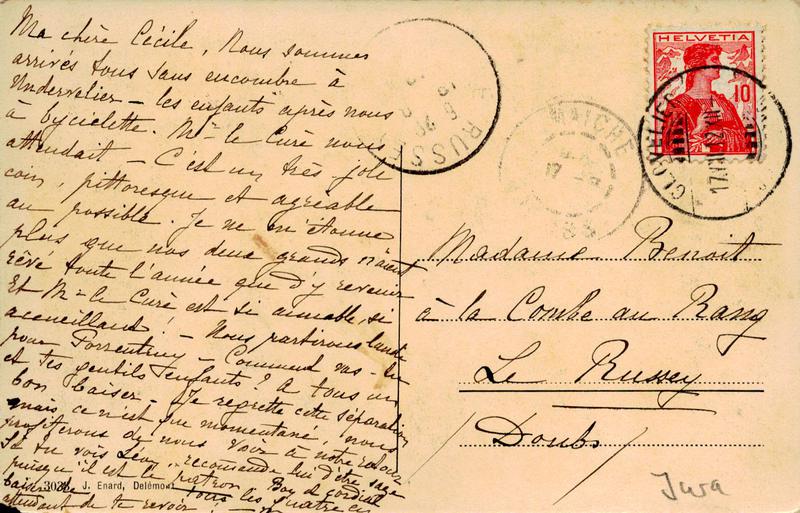 Ma chère Cécile, Nous sommes
arrivés tous sans encombre à
Undervelier - les enfants après nous
à bycielette. Mr le Curé nous
attendait - C'est un très joli
coin, pittoresque et agréable
au possible. Je ne m'étonne
plus que nos deux grands n'aient
rêvé toute l'année que d'y revenir
Et Mr le Curé est si aimable, si
accueillant! - Nous partirons lundi
pour Porrentruy - Comment vas-tu
et tes gentils enfants? à tous un
bon baiser - Je regrette cette séparation
mais ce n'est que momentané, nous
profiterons de nous voir à notre retour
Si tu vois Léon, recommande lui d'être sage
puisqu'il est le patron. Bon & cordial
baiser de tous les quatre en
attendant de te revoir!
3038 J. Enard, Delémont
LE RUSSEY
MAICHE
17
HELVETIA
10
GLOVELIER
Madame Benoit
à la Combe au Rang
Le Russey
/ Doubs /
Jura